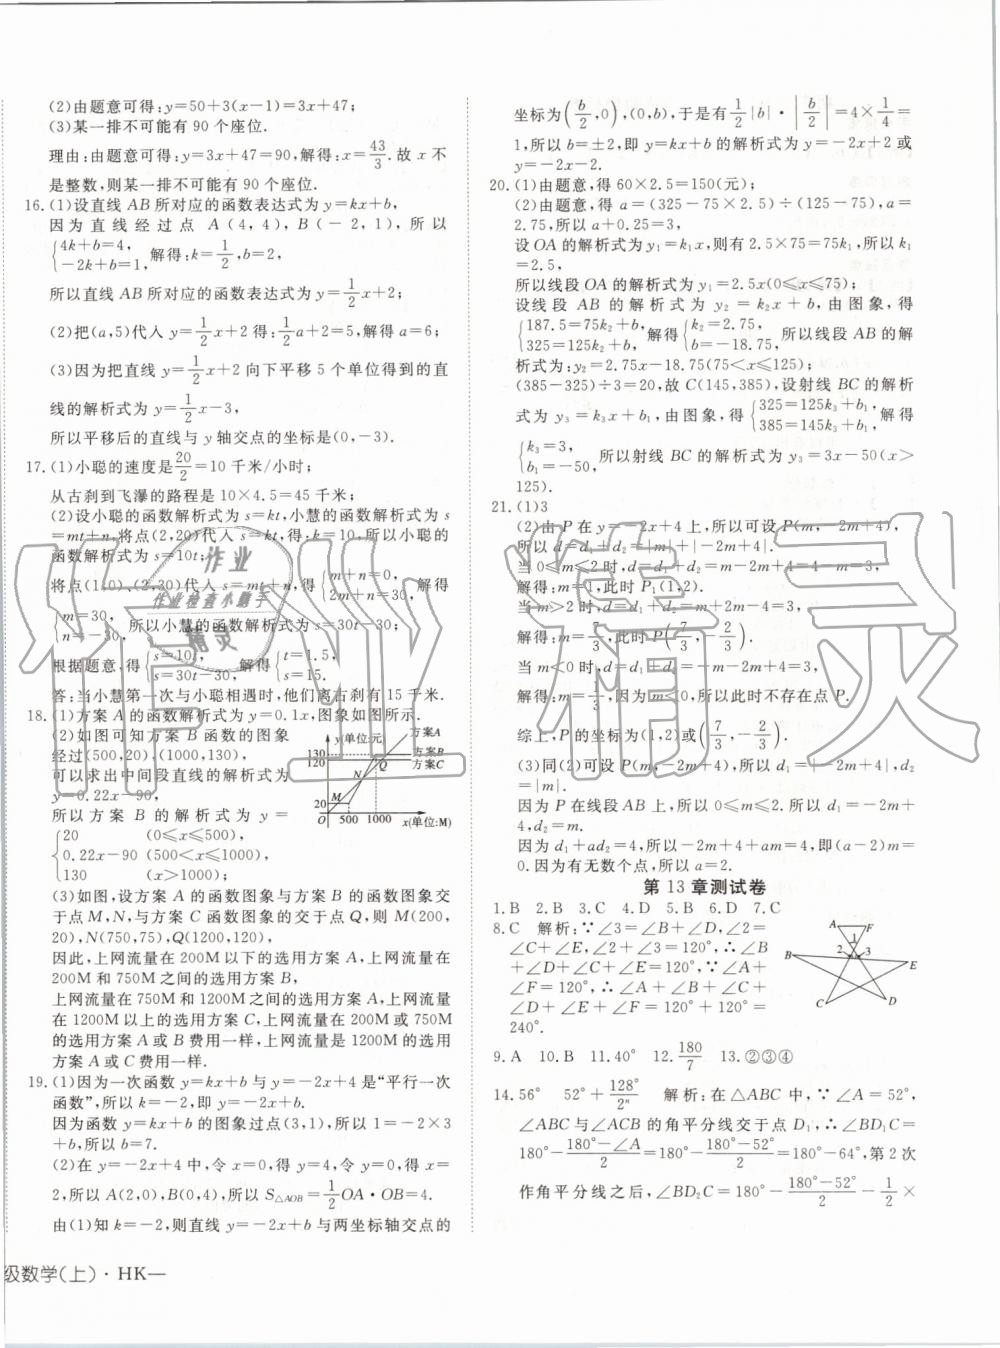 (2)由题意可得:y=50+3(x−1)=3x+47;
(3)某一排不可能有 90 个座位.
理由:由题意可得:y=3x+47=90,解得:x=43/3.故 x 不
是整数,则某一排不可能有 90 个座位.
16.(1)设直线 AB 所对应的函数表达式为 y=kx+b,
因为直线经过点 A(4,4),B(−2,1),所以
{4k+b=4,
−2k+b=1, 解得:k=1/2,b=2,
所以直线 AB 所对应的函数表达式为 y=1/2x+2;
(2)把(a,5)代入 y=1/2x+2 得:1/2a+2=5,解得 a=6;
(3)因为把直线 y=1/2x+2 向下平移 5 个单位得到的直
线的解析式为 y=1/2x−3,
所以平移后的直线与 y 轴交点的坐标是(0,−3).
17.(1)小聪的速度是20/2=10 千米/小时;
从古刹到飞瀑的路程是 10×4.5=45 千米;
(2)设小聪的函数解析式为 s=kt,小慧的函数解析式为 s
=mt+n,将点(2,20)代入 s=kt,得:k=10,所以小聪的
函数解析式为 s=10t;
将点(1,0),(2,30)代入 s=mt+n,得{m+n=0,
2m+n=30, 解得
{m=30,
n=−30, 所以小慧的函数解析式为 s=30t−30;
根据题意,得{s=10t,
s=30t−30, 解得{t=1.5,
s=15.
答:当小慧第一次与小聪相遇时,他们离古刹有 15 千米.
18.(1)方案 A 的函数解析式为 y=0.1x,图象如图所示.
(2)如图可知方案 B 函数的图象
经过(500,20),(1000,130),
可以求出中间段直线的解析式为
y=0.22x−90,
所以方案 B 的解析式为 y=
{20 (0≤x≤500),
0.22x−90 (500<x≤1000),
130 (x>1000)
y(单位:元
方案A
方案B
方案C
130
120
20
M
N
Q
O 500 1000 x(单位:M)
(3)如图,设方案 A 的函数图象与方案 B 的函数图象交
于点 M,N,与方案 C 函数图象的交于点 Q,则 M(200,
20),N(750,75),Q(1200,120),
因此,上网流量在 200M 以下的选用方案 A,上网流量在
200M 和 750M 之间的选用方案 B,
上网流量在 750M 和 1200M 之间的选用方案 A,上网流量
在 1200M 以上的选用方案 C,上网流量在 200M 或 750M
的选用方案 A 或 B 费用一样,上网流量是 1200M 的选用
方案 A 或 C 费用一样.
19.(1)因为一次函数 y=kx+b 与 y=−2x+4 是“平行一次
函数”,所以 k=−2,即 y=−2x+b.
因为函数 y=kx+b 的图象过点(3,1),所以 1=−2×3
+b,所以 b=7.
(2)在 y=−2x+4 中,令 x=0,得 y=4,令 y=0,得 x=
2,所以 A(2,0),B(0,4),所以 S△AOB=1/2OA·OB=4.
由(1)知 k=−2,则直线 y=−2x+b 与两坐标轴交点的
级数学(上)·HK—
坐标为(b/2,0),(0,b),于是有1/2|b|·|b/2|=4×1/4=
1,所以 b=±2,即 y=kx+b 的解析式为 y=−2x+2 或
y=−2x−2.
20.(1)由题意,得 60×2.5=150(元);
(2)由题意,得 a=(325−75×2.5)÷(125−75),a=
2.75,所以 a+0.25=3,
设 OA 的解析式为 y₁=k₁x,则有 2.5×75=75k₁,所以 k₁
=2.5,
所以线段 OA 的解析式为 y₁=2.5x(0≤x≤75);
设线段 AB 的解析式为 y₂=k₂x+b,由图象,得
{187.5=75k₂+b,
325=125k₂+b, 解得{k₂=2.75,
b=−18.75, 所以线段 AB 的解
析式为:y₂=2.75x−18.75(75<x≤125);
(385−325)÷3=20,故 C(145,385),设射线 BC 的解析
式为 y₃=k₃x+b₁,由图象,得{325=125k₃+b₁,
385=145k₃+b₁, 解得
{k₃=3,
b₁=−50, 所以射线 BC 的解析式为 y₃=3x−50(x>
125).
21.(1)3
(2)由 P 在 y=−2x+4 上,所以可设 P(m,−2m+4),
所以 d=d₁+d₂=|m|+|−2m+4|.
当 0≤m≤2 时,d=d₁+d₂=m−2m+4=4−m=3,
解得:m=1,此时 P₁(1,2).
当 m>2 时,d=d₁+d₂=m+2m−4=3,
解得:m=7/3,此时 P(7/3,−2/3).
当 m<0 时,d=d₁+d₂=−m−2m+4=3,
解得:m=1/3,因为 m<0,所以此时不存在点 P.
综上,P 的坐标为(1,2)或(7/3,−2/3).
(3)同(2)可设 P(m,−2m+4),所以 d₁=|−2m+4|,d₂
=|m|.
因为 P 在线段 AB 上,所以 0≤m≤2.所以 d₁=−2m+
4,d₂=m.
因为 d₁+ad₂=4,所以−2m+4+am=4,即(a−2)m=
0.因为有无数个点,所以 a=2.
第 13 章测试卷
1.B 2.B 3.C 4.D 5.B 6.D 7.C
8.C 解析:∵∠3=∠B+∠D,∠2=
∠C+∠E,∠2+∠3=120°,∴∠B
+∠D+∠C+∠E=120°,∵∠A+
∠F=120°,∴∠A+∠B+∠C+
∠D+∠E+∠F=120°+120°=
240°.
A F
1
B 2 3 E
C D
9.A 10.B 11.40° 12.180/7 13.②③④
14.56° 52°+128°/2ⁿ 解析:在△ABC 中,∵∠A=52°,
∠ABC 与∠ACB 的角平分线交于点 D₁,∴∠BD₁C=
180°−(180°−∠A)/2=180°−(180°−52°)/2=180°−64°,第 2 次
作角平分线之后,∠BD₂C=180°−(180°−52°)/2−1/2×
作业
作业检查小助手
精灵
作业精灵